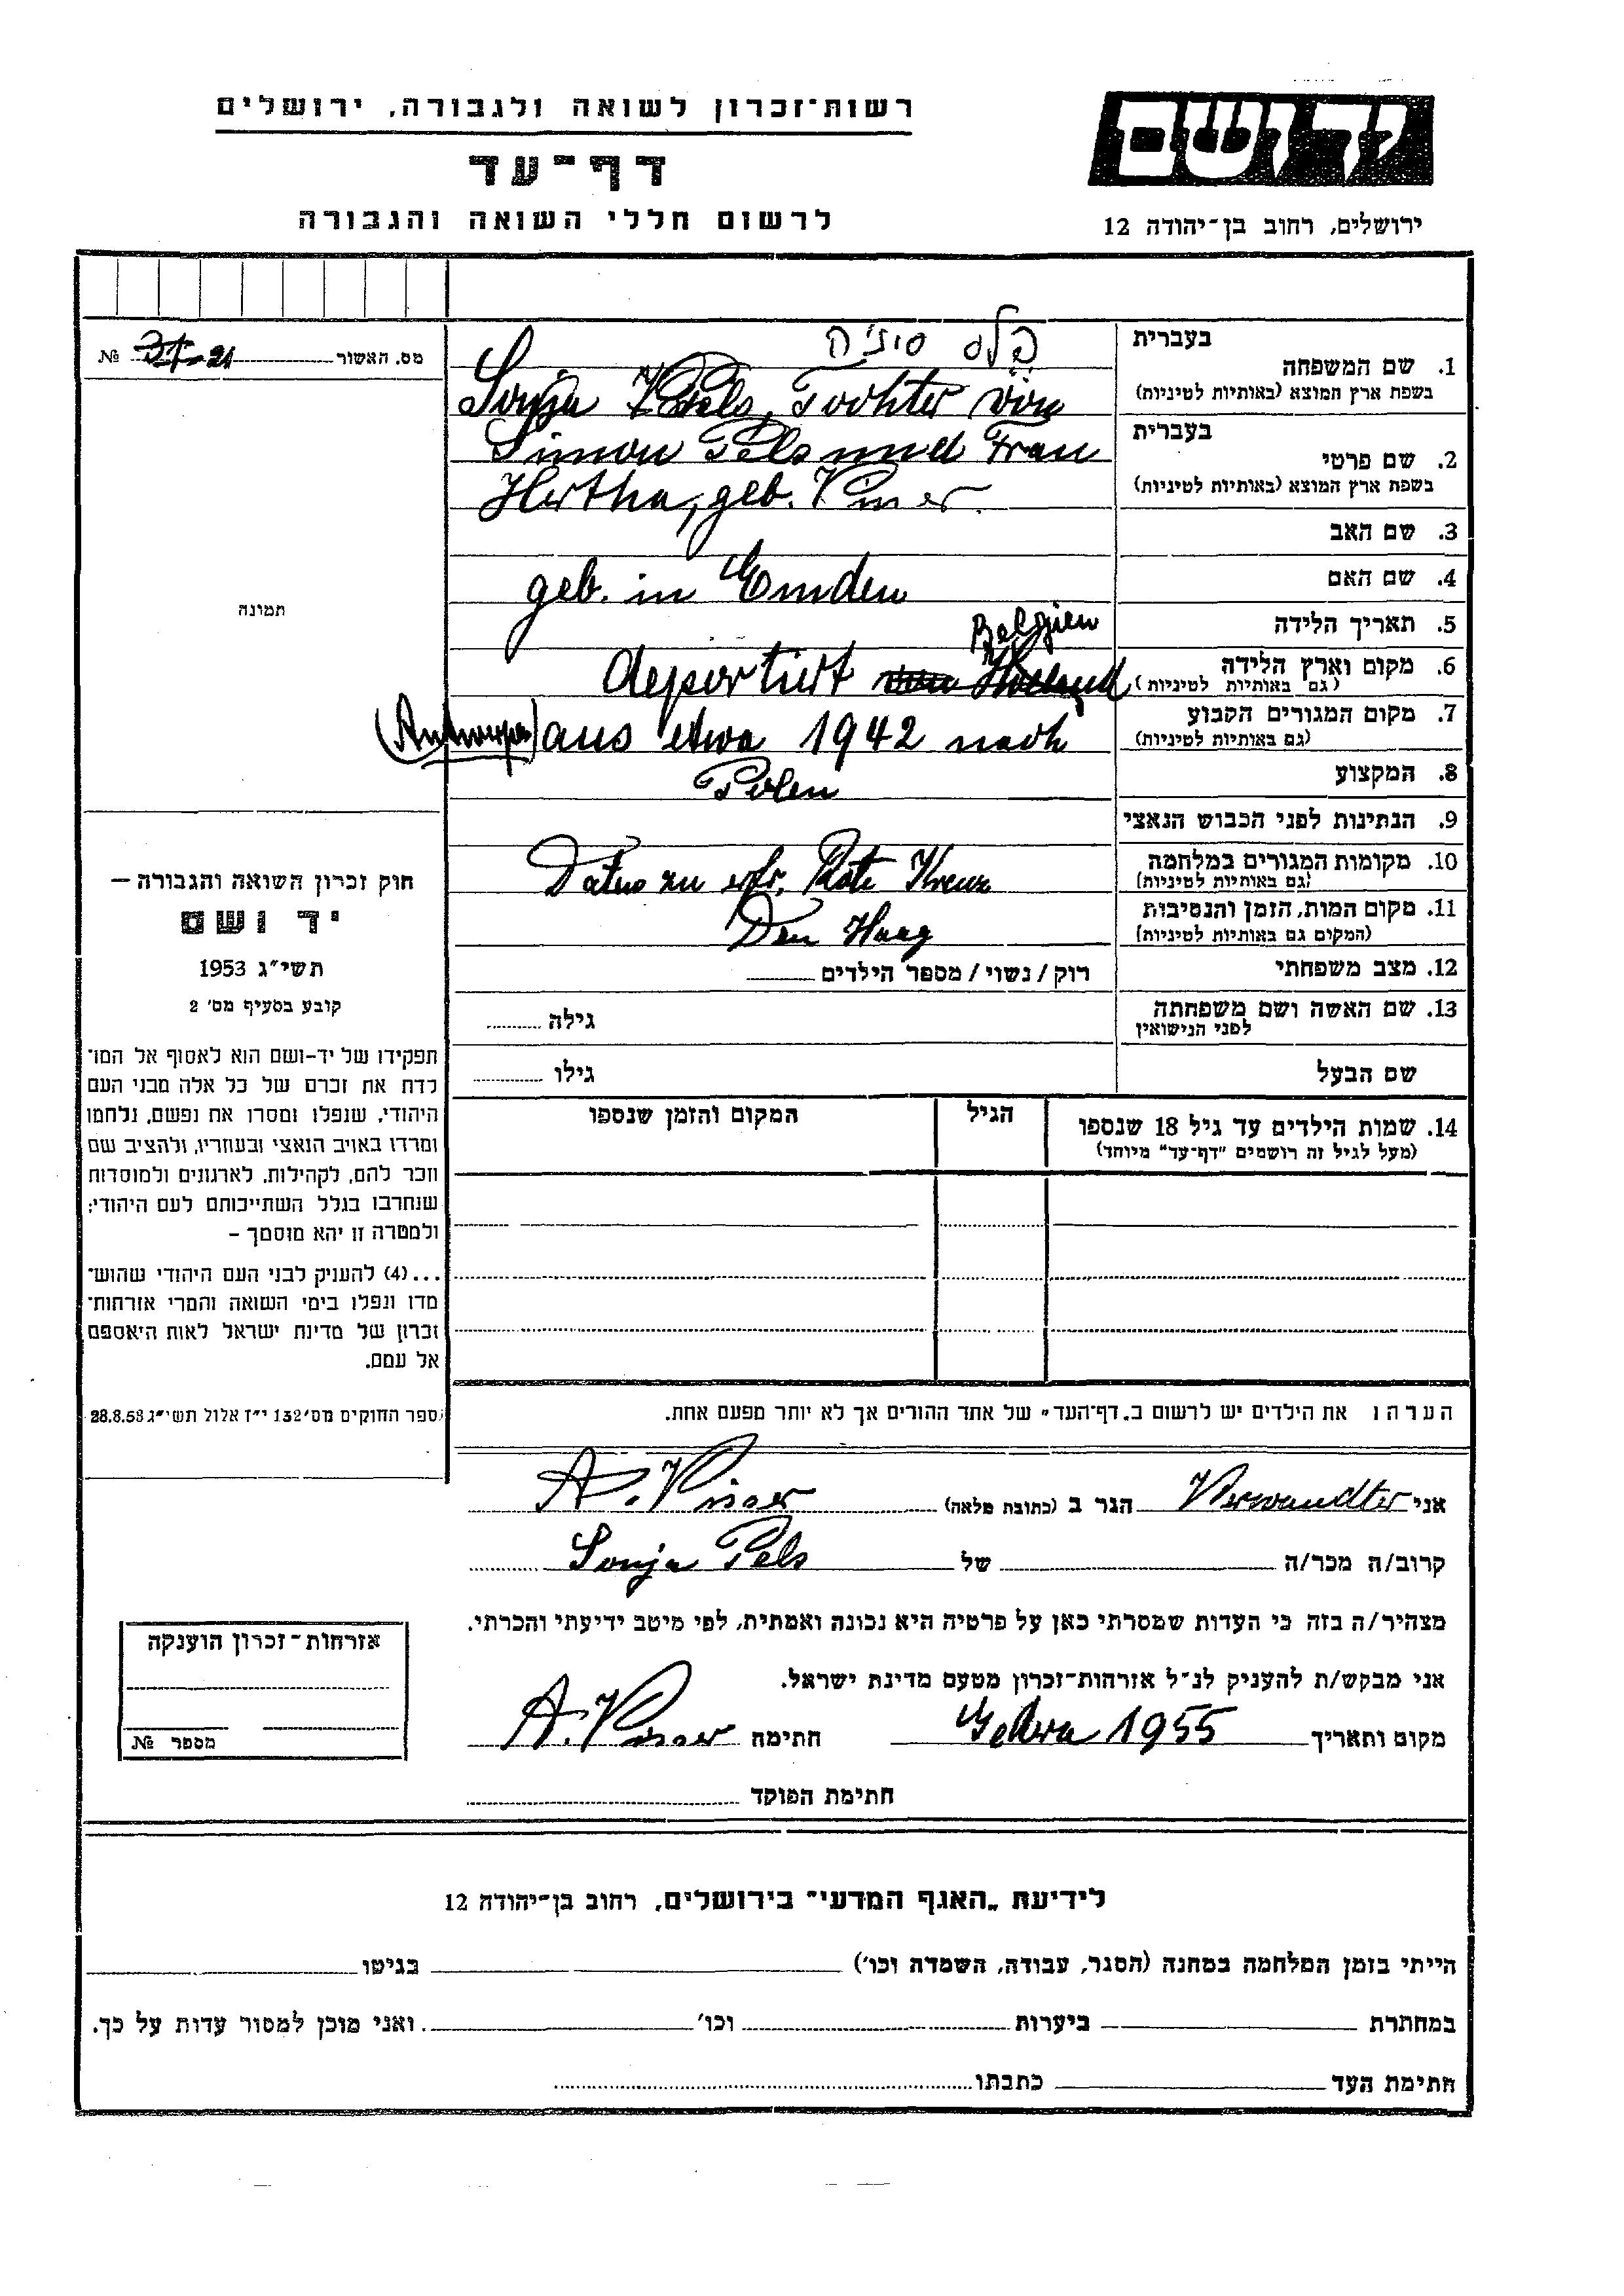 רשות־זכרון לשואה ולגבורה, ירושלים
דף־עד
לרשום חללי השואה והגבורה
יד ושם
ירושלים, רחוב בן־יהודה 12
מס. האשור 21 №
בעברית
פלס סוניה
1. שם המשפחה
בשפת ארץ המוצא (באותיות לטיניות)
Sonja Pels, Tochter von
בעברית
Simon Pels und Frau
2. שם פרטי
בשפת ארץ המוצא (באותיות לטיניות)
Hertha, geb.
3. שם האב
4. שם האם
geb. in Emden
5. תאריך הלידה
Belgien
6. מקום וארץ הלידה
(גם באותיות לטיניות)
deportiert von Holland
7. מקום המגורים הקבוע
(גם באותיות לטיניות)
(Antwerpen) aus etwa 1942 nach
8. המקצוע
Polen
9. הנתינות לפני הכבוש הנאצי
10. מקומות המגורים במלחמה
(גם באותיות לטיניות)
Datus zu erfr. Rote Kreuz
11. מקום המות, הזמן והנסיבות
(המקום גם באותיות לטיניות)
Den Haag
12. מצב משפחתי
רוק/נשוי/מספר הילדים
13. שם האשה ושם משפחתה
לפני הנישואין
גילה
שם הבעל
גילו
14. שמות הילדים עד גיל 18 שנספו
(מעל לגיל זה רושמים "דף־עד" מיוחד)
הגיל
המקום והזמן שנספו
תמונה
חוק זכרון השואה והגבורה —
יד ושם
תשי״ג 1953
קובע בסעיף מס' 2
תפקידו של יד-ושם הוא לאסוף אל המו־
לדת את זכרם של כל אלה מבני העם
היהודי, שנפלו ומסרו את נפשם, נלחמו
ומרדו באויב הנאצי ובעוזריו, ולהציב שם
וזכר להם, לקהילות, לארגונים ולמוסדות
שנחרבו בגלל השתייכותם לעם היהודי;
ולמטרה זו יהא מוסמך –
...(4) להעניק לבני העם היהודי שהוש־
מדו ונפלו בימי השואה והמרי אזרחות־
זכרון של מדינת ישראל לאות היאספם
אל עמם.
ספר החוקים מס' 132 י״ז אלול תשי״ג 28.8.53
הערה: את הילדים יש לרשום ב„דף־העד" של אחד ההורים אך לא יותר מפעם אחת.
אני Verwandter הגר ב (כתובת מלאה) A.
קרוב/ה מכר/ה של Sonja Pels
מצהיר/ה בזה כי העדות שמסרתי כאן על פרטיה היא נכונה ואמתית, לפי מיטב ידיעתי והכרתי.
אני מבקש/ת להעניק לנ״ל אזרחות־זכרון מטעם מדינת ישראל.
מקום ותאריך 1955 חתימה A.
חתימת הפוקד
אזרחות־זכרון הוענקה
מספר №
לידיעת „האגף המדעי" בירושלים, רחוב בן־יהודה 12
הייתי בזמן המלחמה במחנה (הסגר, עבודה, השמדה וכו') בגיטו
במחתרת ביערות וכו' ואני מוכן למסור עדות על כך.
חתימת העד כתבתו